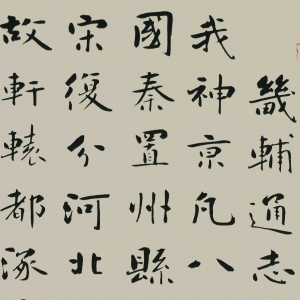 畿輔通志
我神京凡八
國秦置州縣
宋復分河北
故軒轅都涿